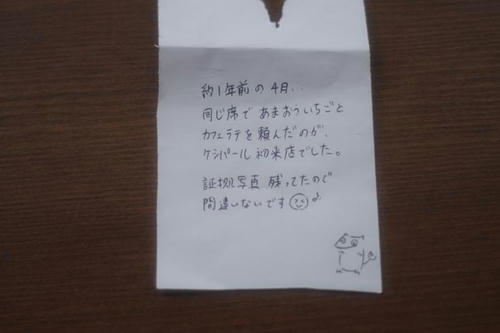 約1年前の4月..
同じ席であまおういちごと
カフェラテを頼んだのが、
ケシパール初来店でした。
証拠写真残ってたので
間違いないです♪